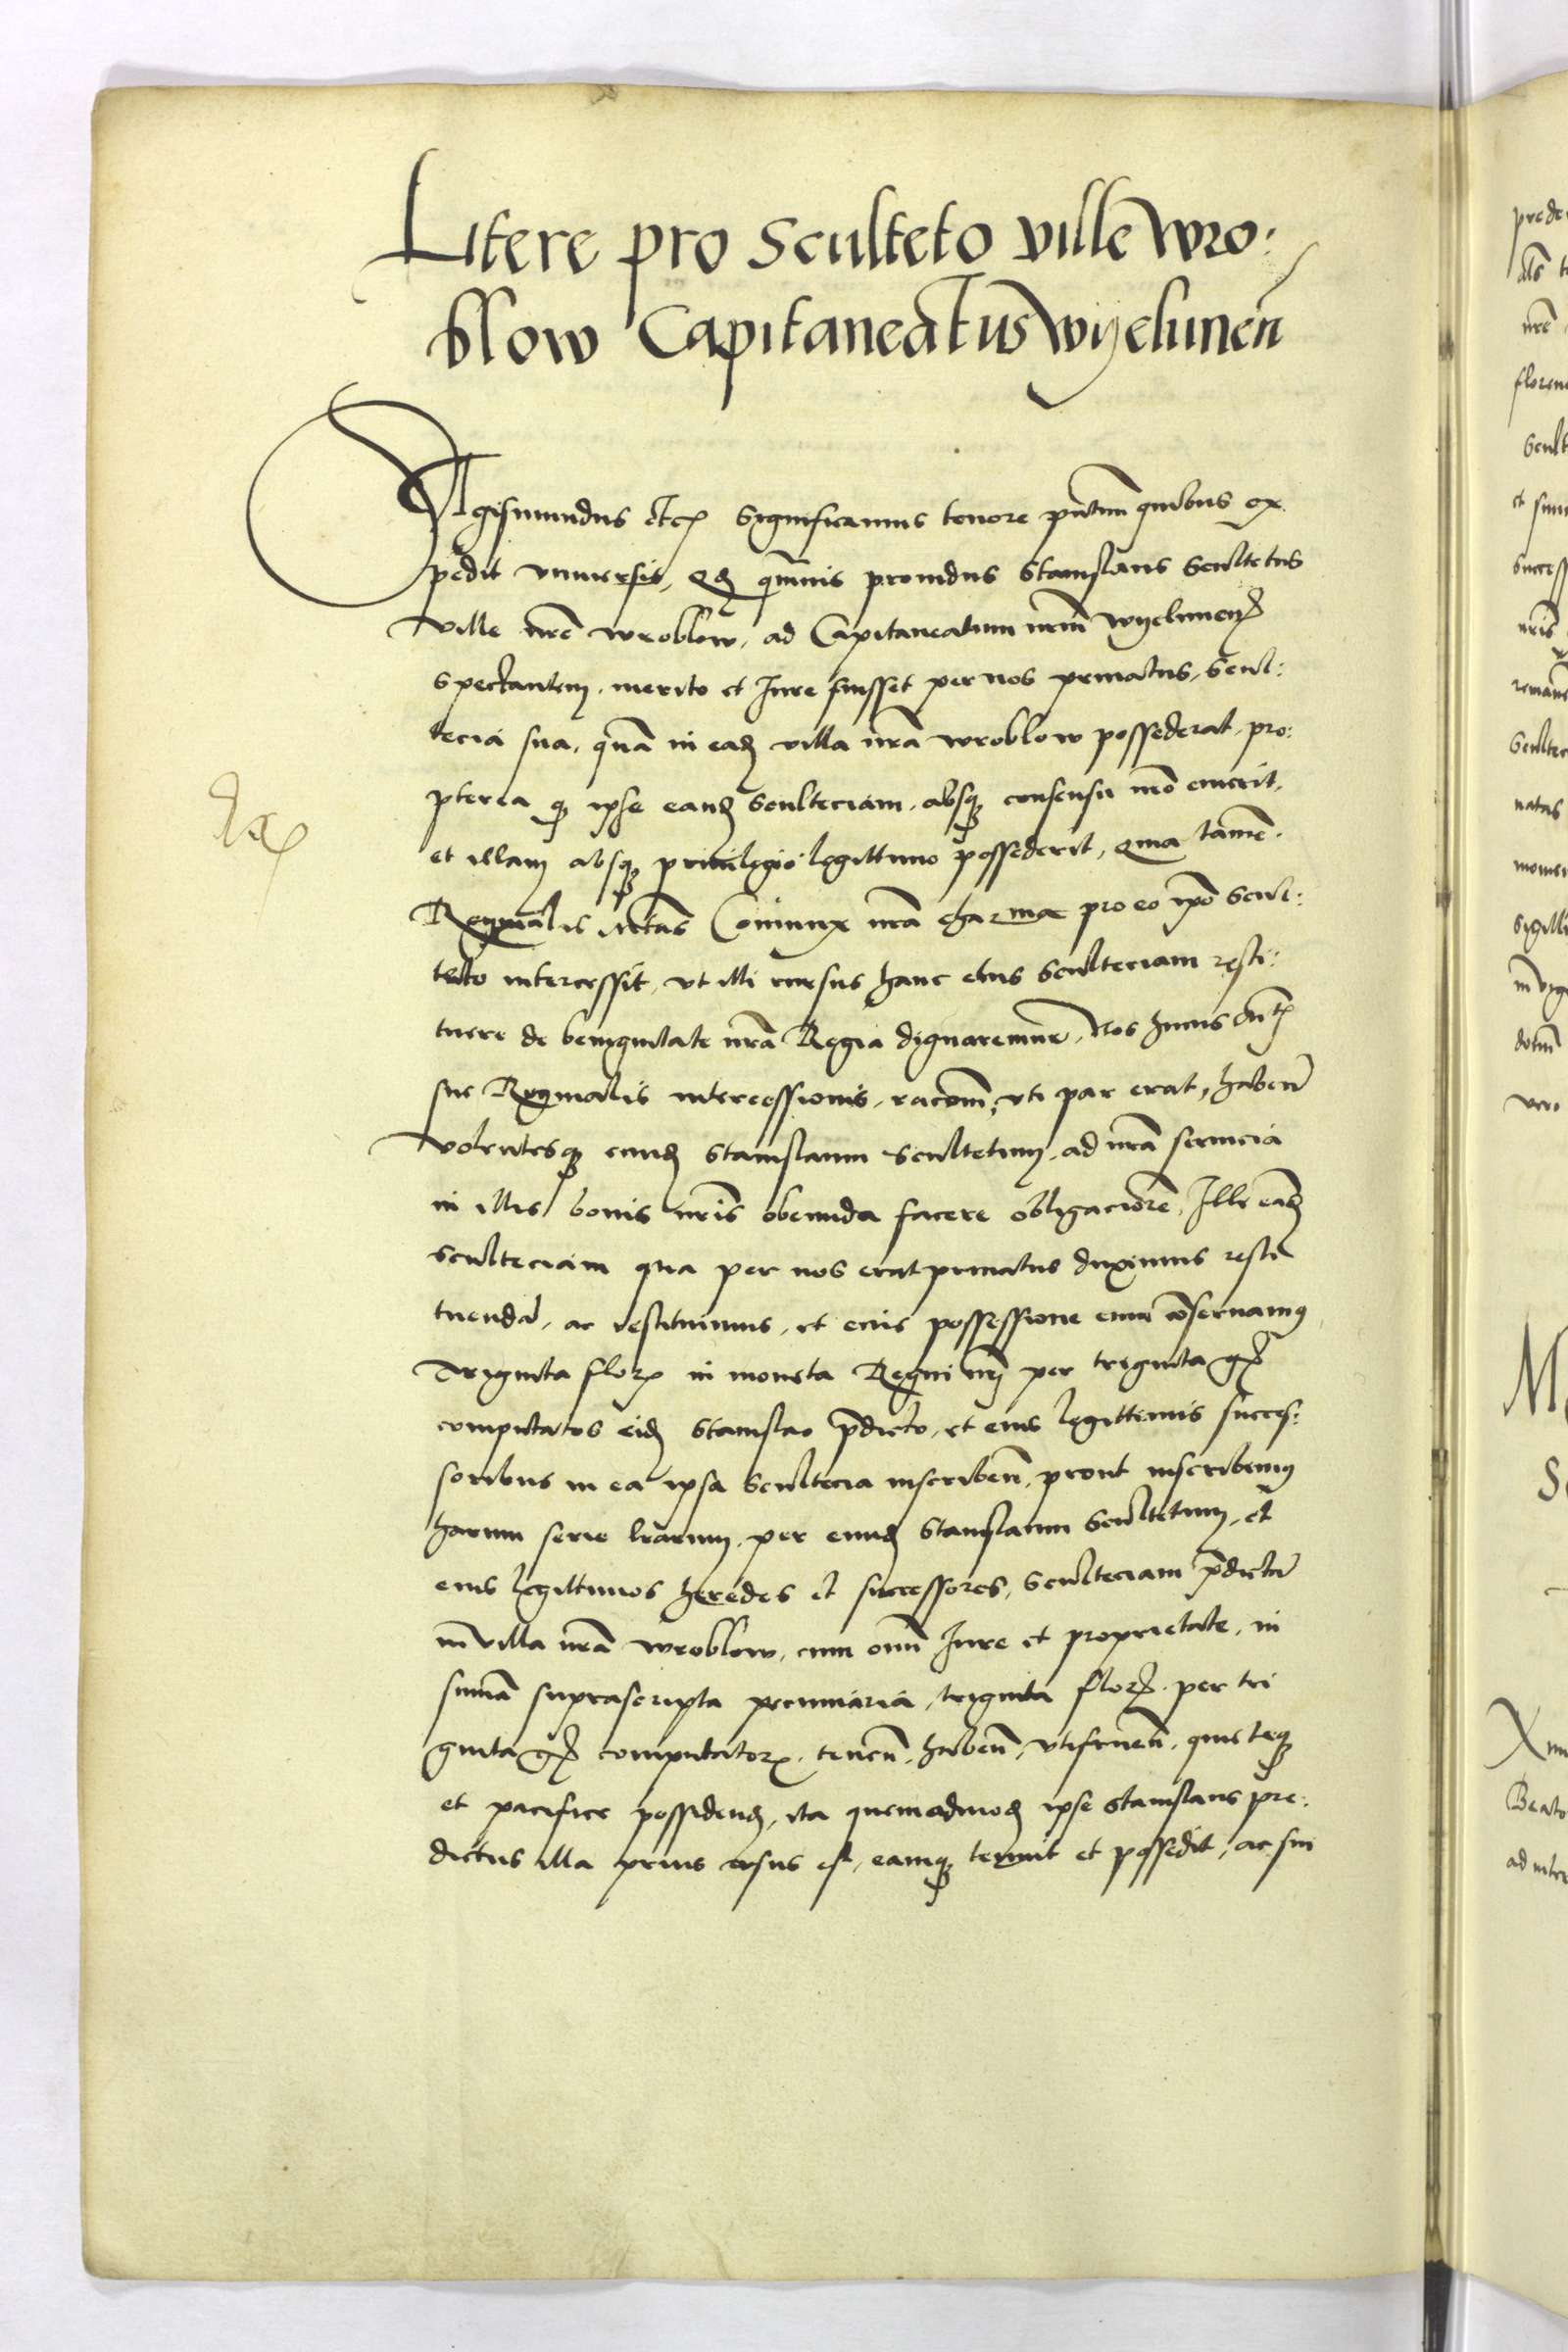 Litere pro Sculteto ville Wro:
blow Capitaneatus Wyelunen̄
Sigismundus etc̄ Significamus tenore pn̄tium quibus ex
pedit vniuersis, Qd̄ quāuis prouidus Stanislaus Scultetus
ville nrē Wroblow, ad Capitaneatum nrm̄ Wyelunen̄
spectantem, merito et Iure fuisset per nos priuatus, Scul:
tecia sua, quā in ead̄ villa nrā Wroblow possederat, pro:
pterea qȝ ipse eand̄ Sculteciam, absqȝ consensu nrō emerit,
et illam absqȝ priuilegio legittimo possederit, Quia tamē
Reginalis Mtās Coniunx nrā charma pro eo ipō Scul:
teto intercessit, vt illi rursus hanc eius Scultetiam resti:
tuere de benignitate nrā Regia dignaremur, Nos huius Mtis
sue Reginalis intercessionis, racionē, vti par erat, haben̄
volentesqȝ eund̄ Stanislaum Scultetum, ad nrā seruicia
in illis bonis nrīs obeunda facere obligaciorē, Illi eand̄
Scultetiam qua per nos erat priuatus duximus resti
tuendā, ac restituimus, et eius possessione eum cōseruamus
Triginta flor̄ in moneta Regni nrī per triginta gr̄
computatos eid̄ Stanislao p̄dicto, et eius legittimis succes:
soribus in ea ipsa Scultecia inscriben̄, prout inscribimus
harum serie lrārum, per eund̄ Stanislaum Scultetum, et
eius legittimos heredes et successores, Sculteciam p̄dictā
in villa nrā Wroblow, cum omni Iure et proprietate, in
summa suprascripta pecuniaria, triginta flor̄ per tri
ginta gr̄ computator̄, tenen̄, haben̄, vtifruen̄, quieteqȝ
et pacifice possidend̄, ita quemadmod̄ ipse Stanislaus pre:
dictus illa prius vsus est, eamqȝ tenuit et possedit, ac sui